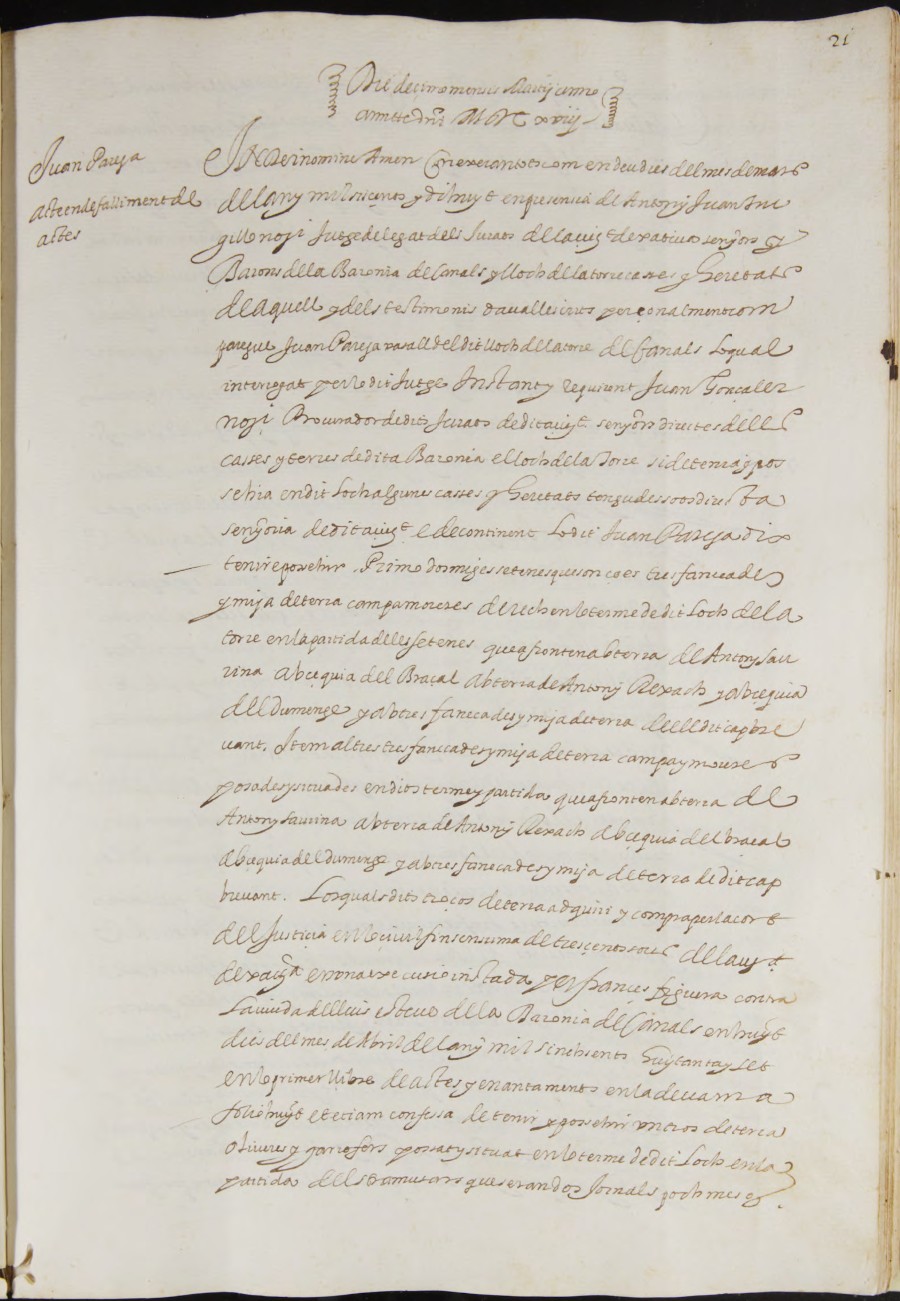 21
Die decimo mensis Martij anno
a nnte dñi M DC xviij
Juan Pareja
acte en defalliment de
actes
In Dei nomine Amen Con executant com en deu dies del mes de mars
del any mil siscents y dihuyt en presensia de Antony Juan
gillo noti Jutge delegat dels Jurats de la ciut de xativa senyors y
Barons de la Baronia de Canals y lloch de la torre casses y heretats
de aquell y dels testimonis davall escrits personalment com
paregue Juan Pareja vasall del dit lloch de la torre de Canals lo qual
interrogat per lo dit Jutge Instant y requirent Juan Gonçalez
noti Procurador de dits Jurats de dita ciut senyors directes de les
casses y terres de dita Baronia e lloch de la Torre si detenia y pos
sehia en dit Loch algunes casses y heretats tengudes sots directa
senyoria de dita ciut E de continent Lo dit Juan Pareja dix
tenir e possehir Primo dos miges setenes que son ço es tres fanecades
y mija de terra campa moreres de rech en lo terme de dit Loch de la
torre en la partida de les setenes que afronten ab terra de Antony Sau
rina ab cequia del Braçal ab terra de Antony Rexach y ab cequia
del Dumenge y ab tres fanecades y mija de terra de ell dit capbre
vant. Item altres tres fanecades y mija de terra campa y moreres
posades y situades en dits terme y partida que afronten ab terra de
Antony Saurina ab terra de Antony Rexach ab cequia del braçal
ab cequia del dumenge y ab tres fanecades y mija de terra de dit cap
brevant. Los quals dits troços de terra adquiri y compra per la cort
del Justicia en lo civil fins en suma de trescents sous de la ciut
de xatiua en una execusio instada per frances figuera contra
La viuda de lluis esteue de la Baronia de Canals en huyt
dies del mes de Abril del any mil sinchsents huytanta y set
en lo primer llibre de actes y enantaments en la deuarra
folio huyt et etiam confessa de tenir y possehir un tros de terra
oliveres y garrofers posat y situat en lo terme de dit Loch en la
partida dels que seran dos Jornals poch mes o